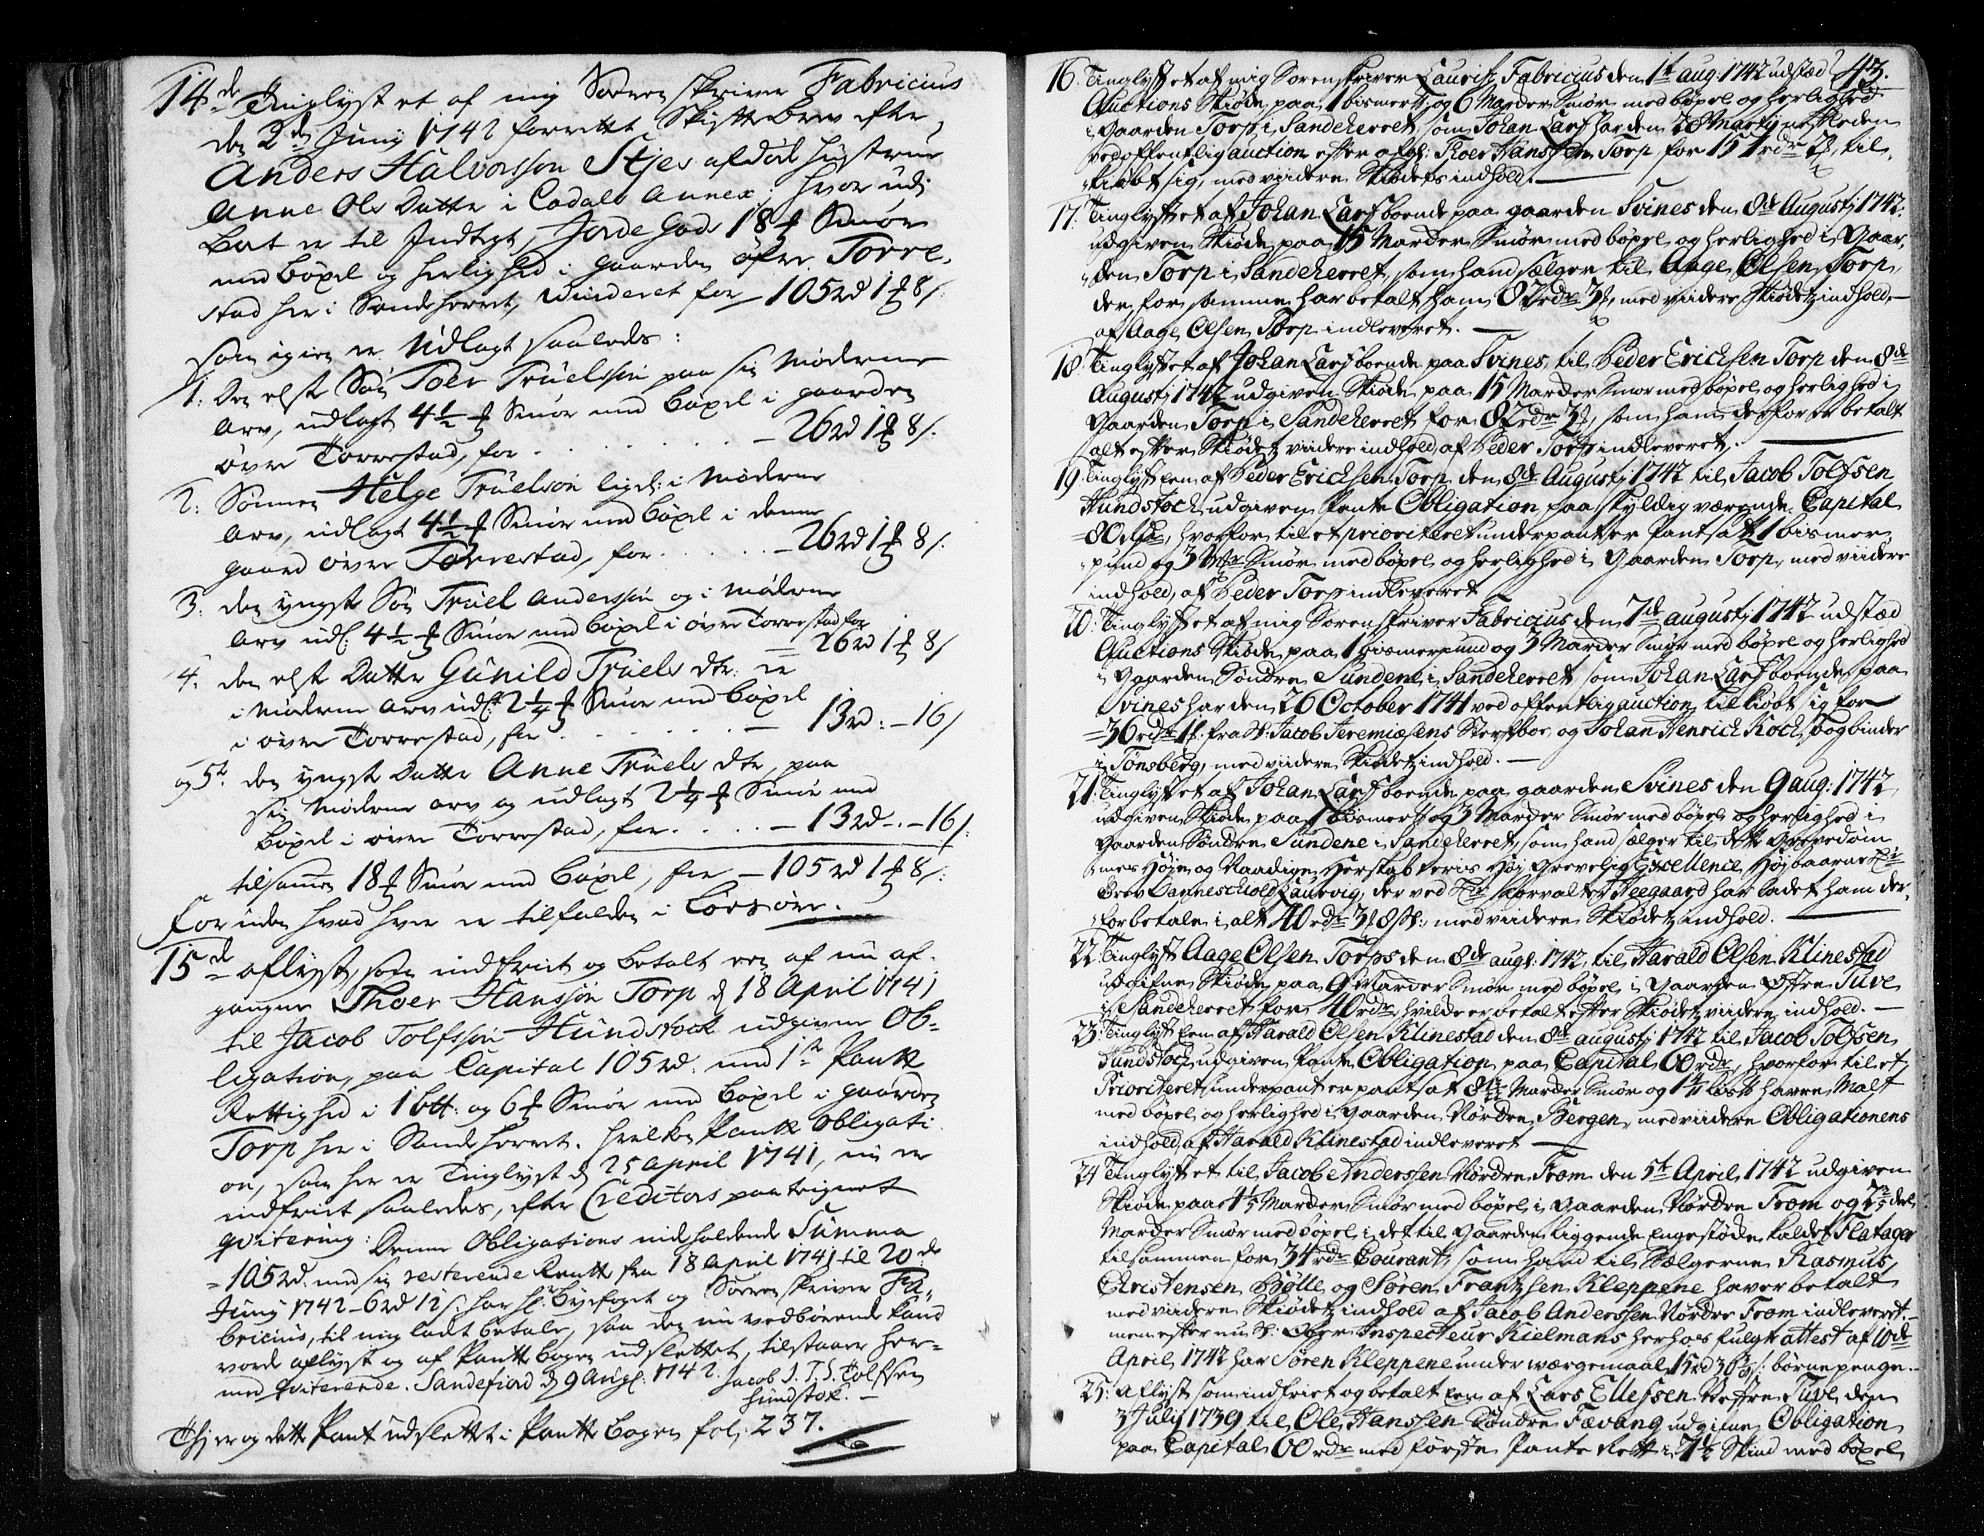 14de Tinglyst et af mig Sorenskriver Fabricius
den 2den Junij 1742 forrettet Skiftebrev efter
Anders Halvorssøn Stjes afdøde hustrue
Anne Ols Datter i Andals Annex; hvor udj
boet er til Indtegt, Jorde Gods 18 ℔ Smør
med bøxel og herlighed i gaarden øfre Torre-
stad her i Sandeherret, vurderet for — 105 rd 1 ℔ 8 s:
som igien er Udlagt saaledes:
1. Den elste Søn Toer Truelssøn paa sin Møderne
Arv, udlagt 4 1/2 ℔ Smør med bøxel i gaarden
øvre Torrestad, for . . . — 26 rd 1 ℔ 8 s.
2. Sønnen Helge Truelsøn ligel: i Møderne
Arv, udlagt 4 1/2 ℔ Smør med bøxel i denne
gaard øvre Torrestad, for . . . — 26 rd 1 ℔ 8 s.
3. den yngste Søn Truel Anderssøn og i møderne
Arv udl: 4 1/2 ℔ Smør med bøxel i øvre Torrestad for
= 26 rd 1 ℔ 8 s
4. den elste Datter Gunild Truels dtr: er
i Møderne arv udl: 2 1/4 ℔ Smør med bøxel
i øvre Torrestad, for . . . — 13 rd: — 16 s
og 5te den yngste Datter Anne Truels dtr, paa
sin Møderne arv og udlagt 2 1/4 ℔ Smør med
bøxel i øvre Torrestad, for . . . — 13 rd — . — 16 s:
tilsamen 18 ℔ Smør med bøxel, for — 105 rd 1 ℔ 8 s:
Foruden hvad hver er tilfalden i Løsøre.
15de aflyst, som indfriet og betalt een af nu af-
gangne Thoer Hanssøn Torp d 18 April 1741
til Jacob Tolfssøn Hundstock udgivne Ob-
ligation, paa Capital 105 rd. med 1ste Pante
Rettighed i 1 btt: og 6 ℔ Smør med bøxel i gaarden
Torp her i Sandeherret. hvilken Pante Obligati-
on, som her er Tinglyst d 25 April 1741, nu er
indfriet saaledes, efter Creditors paategnet
qvitering: Denne Obligations indholdende Summa
= 105 rd. med sin resterende Rente fra 18 April 1741 til 20de
Junij 1742 - 6 rd 12 s. har Hr: Byefoget og Sorenskriver Fa-
bricius, til mig ladet betale, saa den nu vedbørende kand
vorde aflyst og af Pante bogen udslettet, tilstaar her-
med qviterende. Sandefiord d 9 Aug: 1742. Jacob S. T. S. Tolfssen
Hundstok. —
Thj er og dette Pant udslettet i Pantebogen fol: 237.
43.
16. Tinglyst et af mig Sorenskriver Lauritz Fabricius den 1te aug: 1742 udstæd
Auctions Skiøde paa 1 bismer℔ og 6 Marder Smør med bøxel og herlighed
i Gaarden Torp i Sandeherret, som Johan Lars har den 28 Martij næstleden
ved offentlig auction efter afg: Thoer Hanssen Torp, for 157 rdr 2 s, til-
kiøbt sig, med viidere Skiødets indhold. —
17. Tinglyst et af Johan Lars boende paa gaarden Svines den 8de Augustj 1742
udgiven Skiøde paa 15 Marder Smør med bøxel og herlighed i Gaar-
den Torp i Sandeherret, som hand sælger til Aage Olsen Torp,
der for samme har betalt ham 82 rdr 3 s, med viidere Skiødetz indhold, —
af Aage Olsen Torp indleveret. —
18. Tinglyst et af Johan Lars boende paa Svines, til Peder Erichsen Torp den 8de
Augustj 1742 udgiven Skiøde paa 15 Marder Smør med bøxel og herlighed i
Gaarden Torp i Sandeherret for 82 rdr 3 s, som ham derfor er betalt
alt efter Skiødetz viidere indhold, af Peder Torp indleveret. —
19. Tinglyst een af Peder Erichsen Torp den 8de Augustj 1742 til Jacob Tolfsen
Hundstoch udgiven Pante Obligation paa skyldig værende Capital
= 80 rdr, hvorfor til et prioriteret underpant er Pantsat 1 bismer-
pund og 3 Mrk Smør med bøxel og herlighed i Gaarden Torp, med viidere
indhold, af Peder Torp indleveret
20. Tinglyst et af mig Sorenskriver Fabricius den 7de augustj 1742 udstæd
Auctions Skiøde paa 1 bismerpund og 3 Marder Smør med bøxel og herlighed
i Gaarden Søndre Sundene i Sandeherret, som Johan Lars boende paa
Svines har den 26 October 1741 ved offentlig auction tilkiøbt sig for
= 36 rdr 1 s. fra S: Jacob Jeremiæsens Sterfboe, og Johan Henrich Koch, bogbinder
i Tønsberg, med viidere Skiødetz indhold. —
21. Tinglyst et af Johan Lars boende paa gaarden Svines den 9 aug: 1742
udgiven Skiøde paa 1 bismer℔ og 3 Marder Smør med bøxel og herlighed i
Gaarden Søndre Sundene i Sandeherret, som hand sælger til dette Grevedøm-
mes Høje og Naadige Herskab Heris Høj Grevelig Excellence, Højbaarne Hr
Grev Danneschiold Laurvig, der ved Hr Forvalter Heegaard har ladet ham der-
for betale i alt 40 rdr 3 s 8 sk:, med viidere Skiødetz indhold. —
22. Tinglyst Aage Olsen Torps den 8de augt: 1742 til Harald Olsen Klinestad
udgifne Skiøde paa 9 Marder Smør med bøxel i Gaarden Øfre Tuve
i Sandeherret for 40 rdr, hvilke er betalt efter Skiødetz viidere indhold. —
23. Tinglyst een af Harald Olsen Klinestad den 8de augustj 1742 til Jacob Tolfsen
Hundstoch udgiven Pante Obligation paa Capital 60 rdr, hvorfor til et
Prioriteret underpant er pantsat 8 1/2 Marder Smør og 1 1/4 Løst havre Malt
med bøxel og herlighed i Gaarden Nordre Bergen, med viidere Obligationens
indhold, af Harald Klinestad indleveret —
24 Tinglyst et til Jacob Anderssen Nordre From den 5te April 1742 udgiven
Skiøde paa 1 1/5 Marder Smør med bøxel i Gaarden Nordre From og 2/5 deel
Marder Smør med bøxel i det til Gaarden liggende Engestøde kaldet Flatager
tilsammen for 34 rdr Courant, som hand til Sælgerne Rasmus
Christensen Bjølle og Søren Frantzsen Kleppene haver betalt
med viidere Skiødetz indhold af Jacob Anderssen Nordre From indleveret, —
men efter nu S: Ober Inspecteur Kielmans herhos fulgte attest af 10de
April 1742 har Søren Kleppene under værgemaal 15 rd 36 1/2 s: børnepenge. —
25. Aflyst som indfriet og betalt een af Lars Ellefsen Neffre Tuve den
3 Julij 1739 til Ole Hanssen Søndre Fævang udgifne Obligation
paa Capital 60 rdr med første Pante Rett i 7 1/2 Skind med bøxel